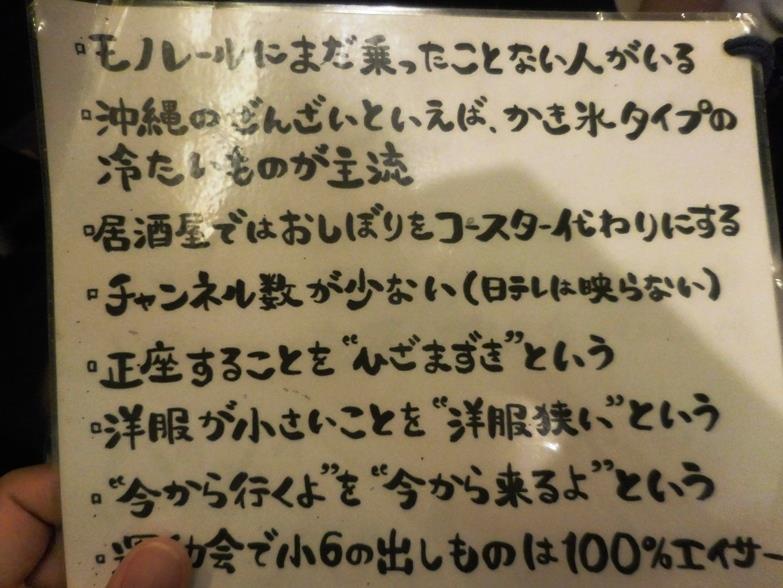 ▫モノレールにまだ乗ったことない人がいる
▫沖縄のぜんざいといえば、かき氷タイプの
冷たいものが主流
▫居酒屋ではおしぼりをコースター代わりにする
▫チャンネル数が少ない(日テレは映らない)
▫正座することを“ひざまずき”という
▫洋服が小さいことを“洋服狭い”という
▫“今から行くよ”を“今から来るよ”という
▫運動会で小6の出しものは100%エイサー